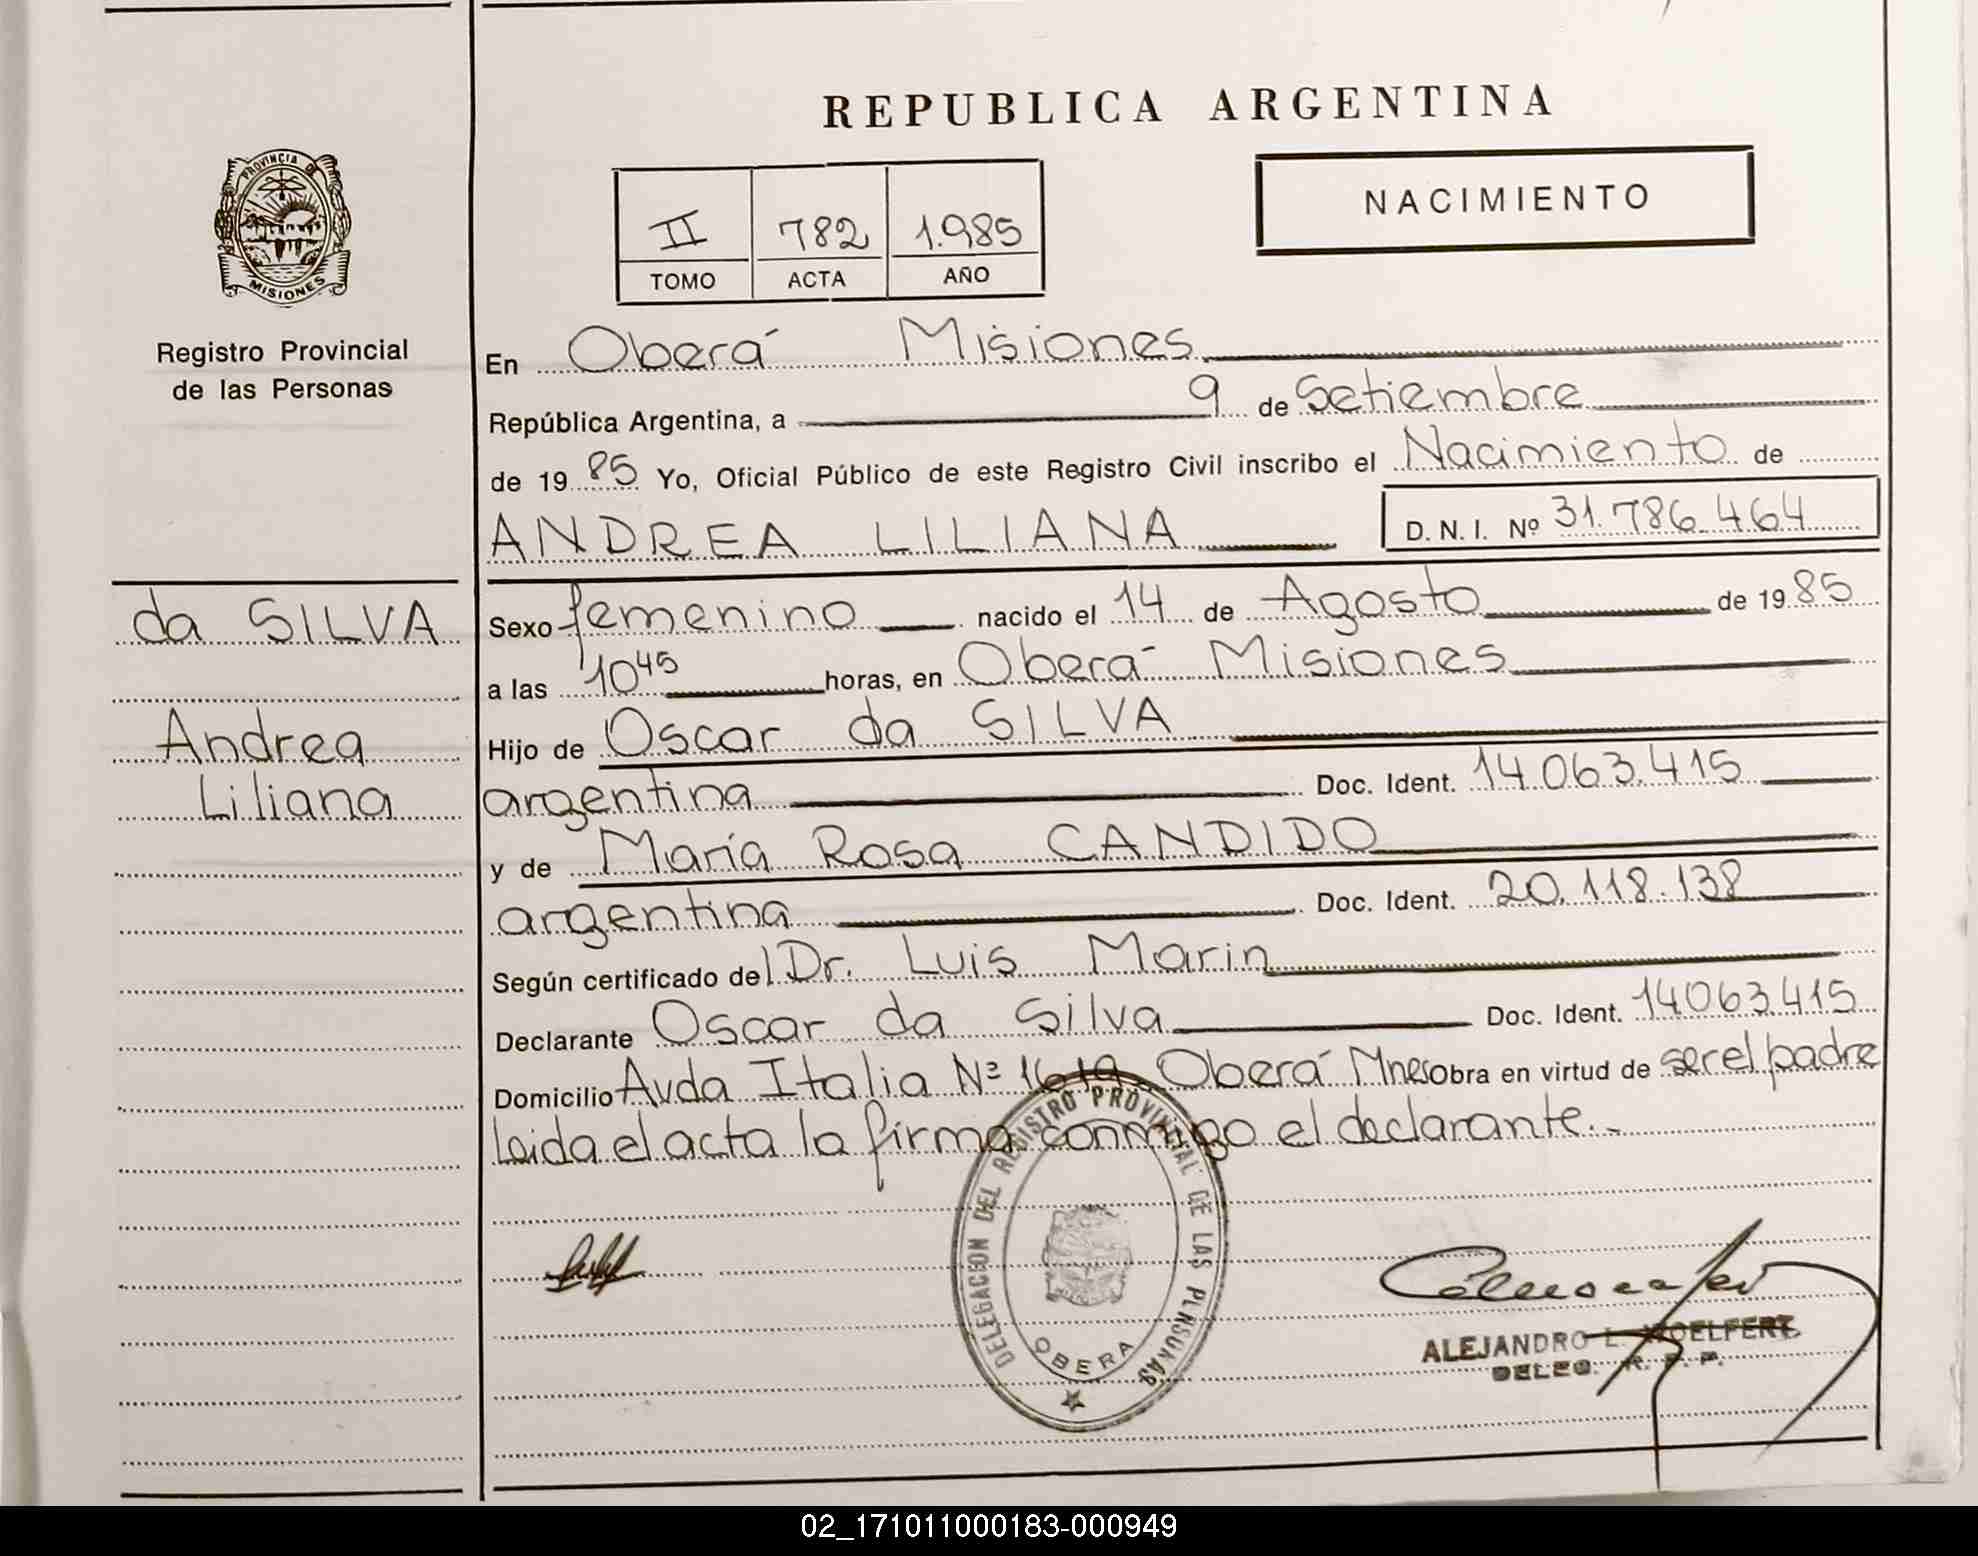 REPUBLICA ARGENTINA
NACIMIENTO
PROVINCIA DE
MISIONES
II 782 1.985
TOMO ACTA AÑO
Registro Provincial
de las Personas
En Oberá Misiones
República Argentina, a 9 de Setiembre
de 1985 Yo, Oficial Público de este Registro Civil inscribo el Nacimiento de
ANDREA LILIANA D. N. I. Nº 31.786.464
da SILVA
Andrea
Liliana
Sexo femenino nacido el 14 de Agosto de 1985
a las 10 45 horas, en Oberá Misiones
Hijo de Oscar da SILVA
argentina Doc. Ident. 14.063.415
y de María Rosa CANDIDO
argentina Doc. Ident. 20.118.138
Según certificado del Dr. Luis Marin
Declarante Oscar da Silva Doc. Ident. 14063.415
Domicilio Avda Italia Nº 1619 Oberá Mnes obra en virtud de ser el padre
Leida el acta la firma conmigo el declarante.-
DELEGACION DEL REGISTRO PROVINCIAL DE LAS PERSONAS
OBERA
ALEJANDRO L. WOELFERT
DELEG. R. P. P.
02_171011000183-000949